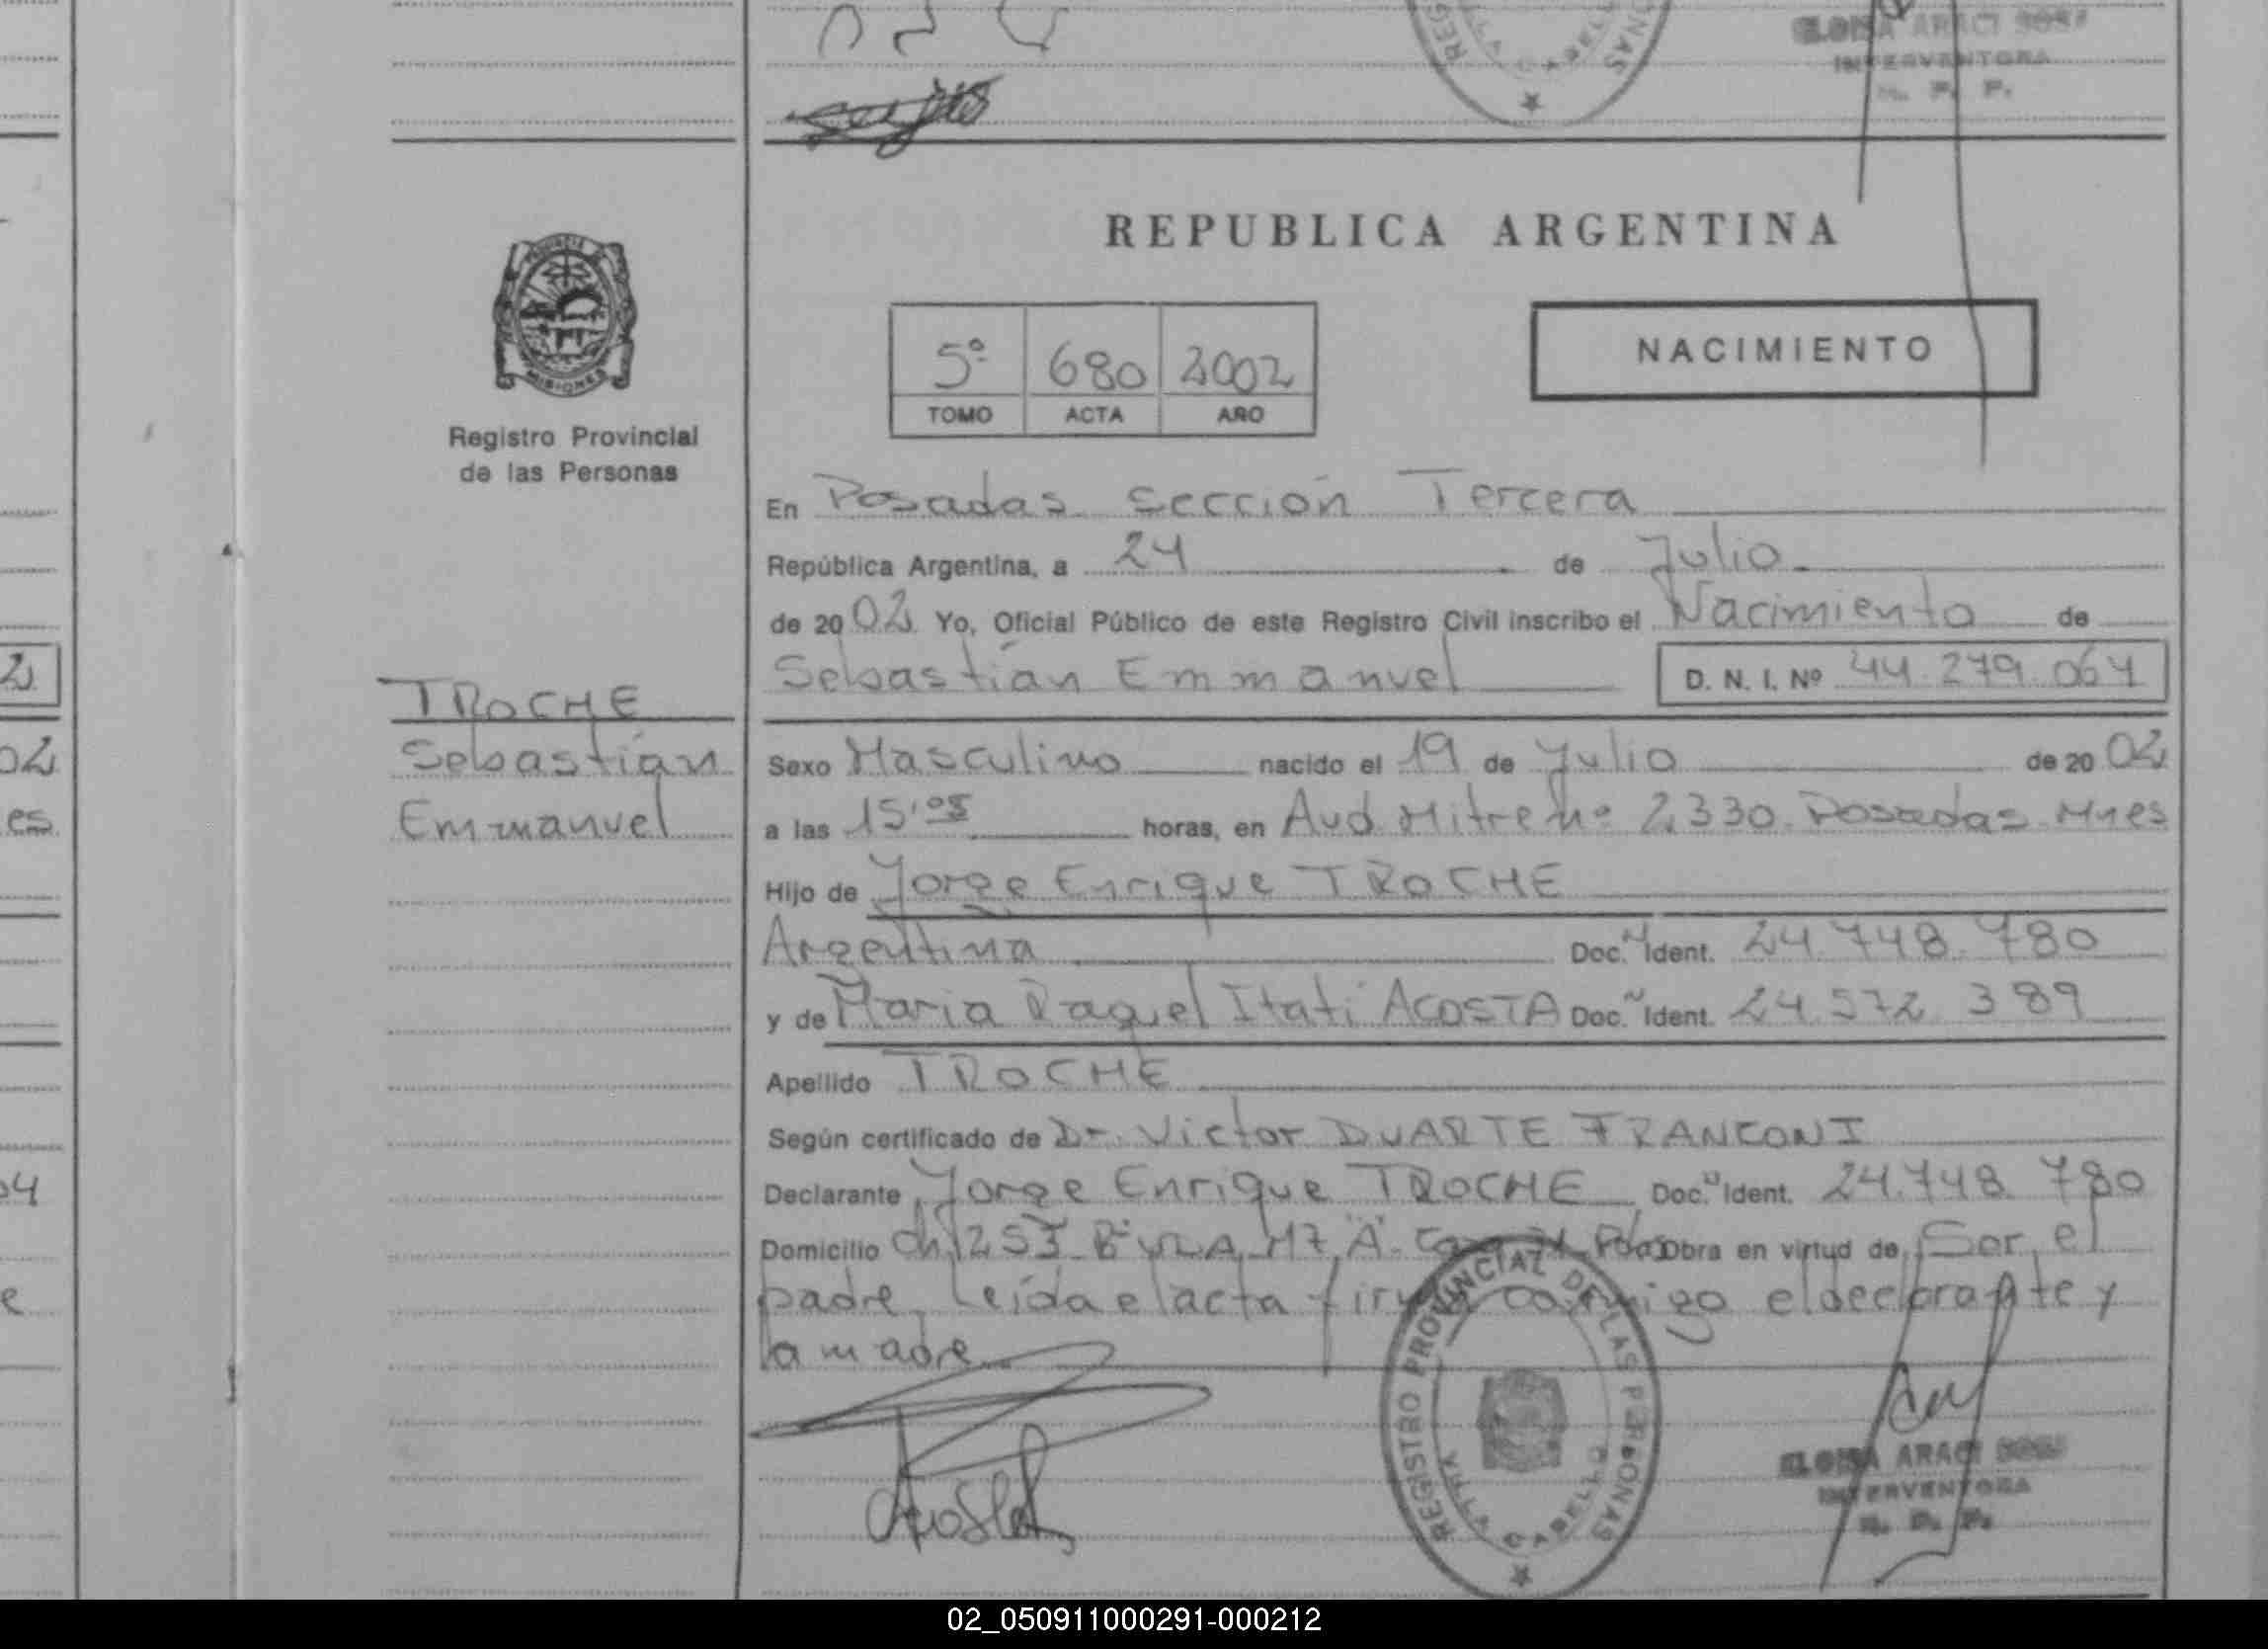 ELOISA ARACI
INTERVENTORA
R. P. P.
REPUBLICA ARGENTINA
PROVINCIA
MISIONES
Registro Provincial
de las Personas
5º 680 2002
TOMO ACTA AÑO
NACIMIENTO
En Posadas sección Tercera
República Argentina, a 24 de Julio
de 2002 Yo, Oficial Público de este Registro Civil inscribo el Nacimiento de
Sebastián Emmanuel D. N. I. Nº 44.279.064
TROCHE
Sebastián
Emmanuel
Sexo Masculino nacido el 19 de Julio de 2002
a las 15,05 horas, en Avd. Mitre nº 2330 Posadas Mnes
Hijo de Jorge Enrique TROCHE
Argentina Doc. N Ident. 24.748.780
y de Maria Raquel Itatí ACOSTA Doc. N Ident. 24.572.389
Apellido TROCHE
Según certificado de Dr. Victor DUARTE FRANCONI
Declarante Jorge Enrique TROCHE Doc. N Ident. 24.748.780
Domicilio Ch 253 Bº Mz A Pdas Obra en virtud de Ser el
padre, Leída el acta firma conmigo el declarante y
la madre
Acosta
REGISTRO PROVINCIAL DE LAS PERSONAS
VILLA CABELLO
ELOISA ARACI
INTERVENTORA
R. P. P.
02_050911000291-000212